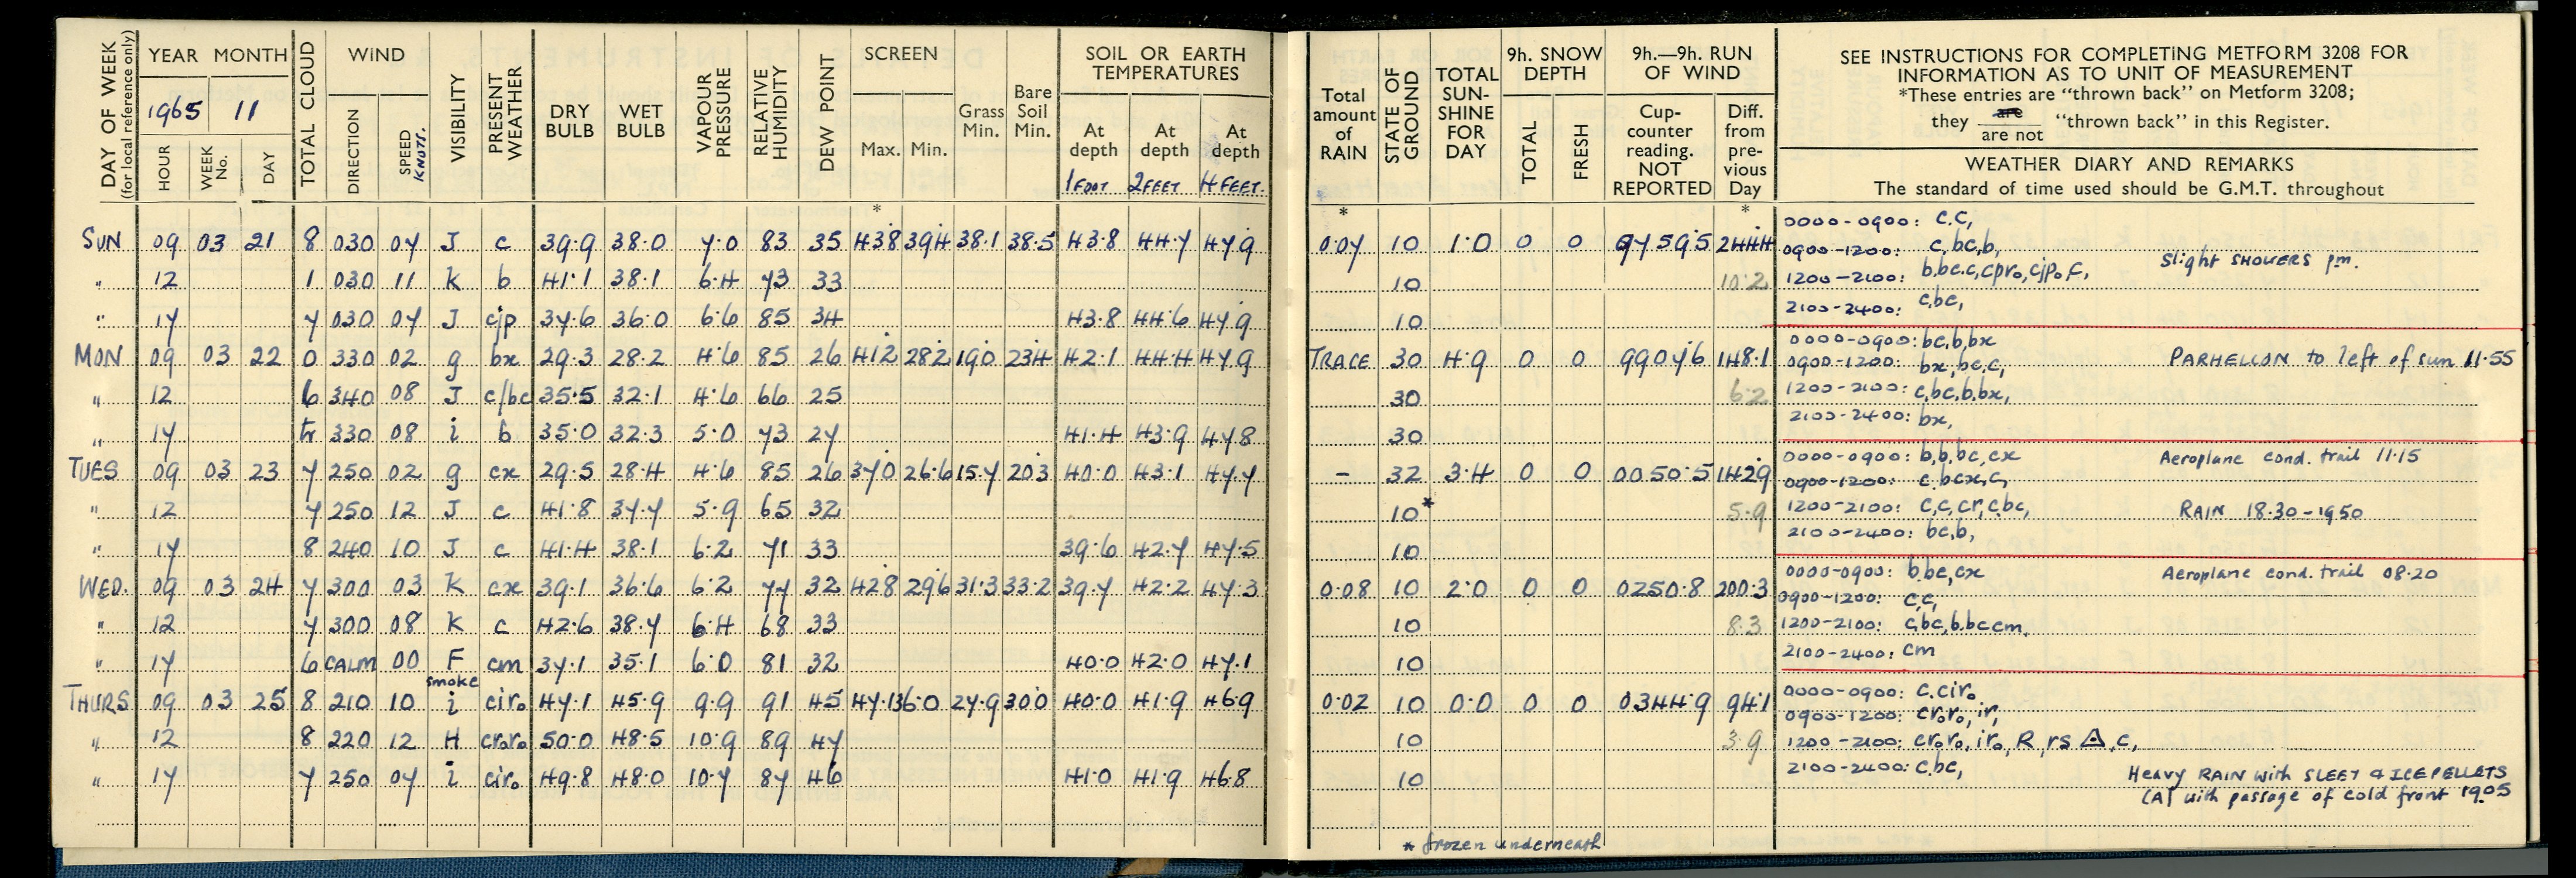 DAY OF WEEK (for local reference only) YEAR MONTH TOTAL CLOUD WIND VISIBILITY PRESENT WEATHER DRY BULB WET BULB VAPOUR PRESSURE RELATIVE HUMIDITY DEW POINT SCREEN Grass Min. Bare Soil Min. SOIL OR EARTH TEMPERATURES
1965 11
HOUR WEEK No. DAY DIRECTION SPEED KNOTS. Max. Min. At depth 1 FOOT At depth 2 FEET At depth 4 FEET.
Total amount of RAIN STATE OF GROUND TOTAL SUN-SHINE FOR DAY 9h. SNOW DEPTH TOTAL FRESH 9h.—9h. RUN OF WIND Cup-counter reading. NOT REPORTED Diff. from pre-vious Day
SEE INSTRUCTIONS FOR COMPLETING METFORM 3208 FOR
INFORMATION AS TO UNIT OF MEASUREMENT
*These entries are "thrown back" on Metform 3208;
they are / are not "thrown back" in this Register.
WEATHER DIARY AND REMARKS
The standard of time used should be G.M.T. throughout
* * *
SUN 09 03 21 8 030 07 J c 39.9 38.0 7.0 83 35 43.8 39.4 38.1 38.5 43.8 44.7 47.9 0.07 10 1.0 0 0 9759.5 244.4 0000-0900: c.c,
0900-1200: c,bc,b,
Slight SHOWERS p.m.
" 12 1 030 11 K b 41.1 38.1 6.4 73 33 10 10.2 1200-2100: b,bc.c,cpro,cjpo,c,
" 17 7 030 07 J cjp 37.6 36.0 6.6 85 34 43.8 44.6 47.9 10 2100-2400: c,bc,
MON 09 03 22 0 330 02 g bx 29.3 28.2 4.6 85 26 41.2 28.2 19.0 23.4 42.1 44.4 47.9 TRACE 30 4.9 0 0 9907.6 148.1 0000-0900: bc,b,bx
0900-1200: bx,bc,c, PARHELION to left of sun 11.55
" 12 6 340 08 J c/bc 35.5 32.1 4.6 66 25 30 6.2 1200-2100: c,bc,b,bx,
" 17 tr 330 08 i b 35.0 32.3 5.0 73 27 41.4 43.9 47.8 30 2100-2400: bx,
TUES 09 03 23 7 250 02 g cx 29.5 28.4 4.6 85 26 37.0 26.6 15.7 20.3 40.0 43.1 47.7 - 32 3.4 0 0 0050.5 142.9 0000-0900: b,b,bc,cx Aeroplane cond. trail 11.15
0900-1200: c,bcx,c,
" 12 7 250 12 J c 41.8 37.7 5.9 65 32 10* 5.9 1200-2100: c,c,cr,c,bc, RAIN 18.30-1950
" 17 8 240 10 J c 41.4 38.1 6.2 71 33 39.6 42.7 47.5 10 2100-2400: bc,b,
WED. 09 03 24 7 300 03 K cx 39.1 36.6 6.2 77 32 42.8 29.6 31.3 33.2 39.7 42.2 47.3 0.08 10 2.0 0 0 0250.8 200.3 0000-0900: b,bc,cx Aeroplane cond. trail 08.20
0900-1200: c,c,
" 12 7 300 08 K c 42.6 38.7 6.4 68 33 10 8.3 1200-2100: c,bc,b,bc cm,
" 17 6 CALM 00 F smoke cm 37.1 35.1 6.0 81 32 40.0 42.0 47.1 10 2100-2400: cm
THURS 09 03 25 8 210 10 i ciro 47.1 45.9 9.9 91 45 47.1 36.0 27.9 30.0 40.0 41.9 46.9 0.02 10 0.0 0 0 0344.9 94.1 0000-0900: c.ciro,
0900-1200: croro,ir,
" 12 8 220 12 H croro 50.0 48.5 10.9 89 47 10 3.9 1200-2100: croro, iro, R, rs △, c,
" 17 7 250 07 i ciro 49.8 48.0 10.7 87 46 41.0 41.9 46.8 10 2100-2400: c,bc,
Heavy RAIN with SLEET & ICE PELLETS
(△) with passage of cold front 1905
* frozen underneath